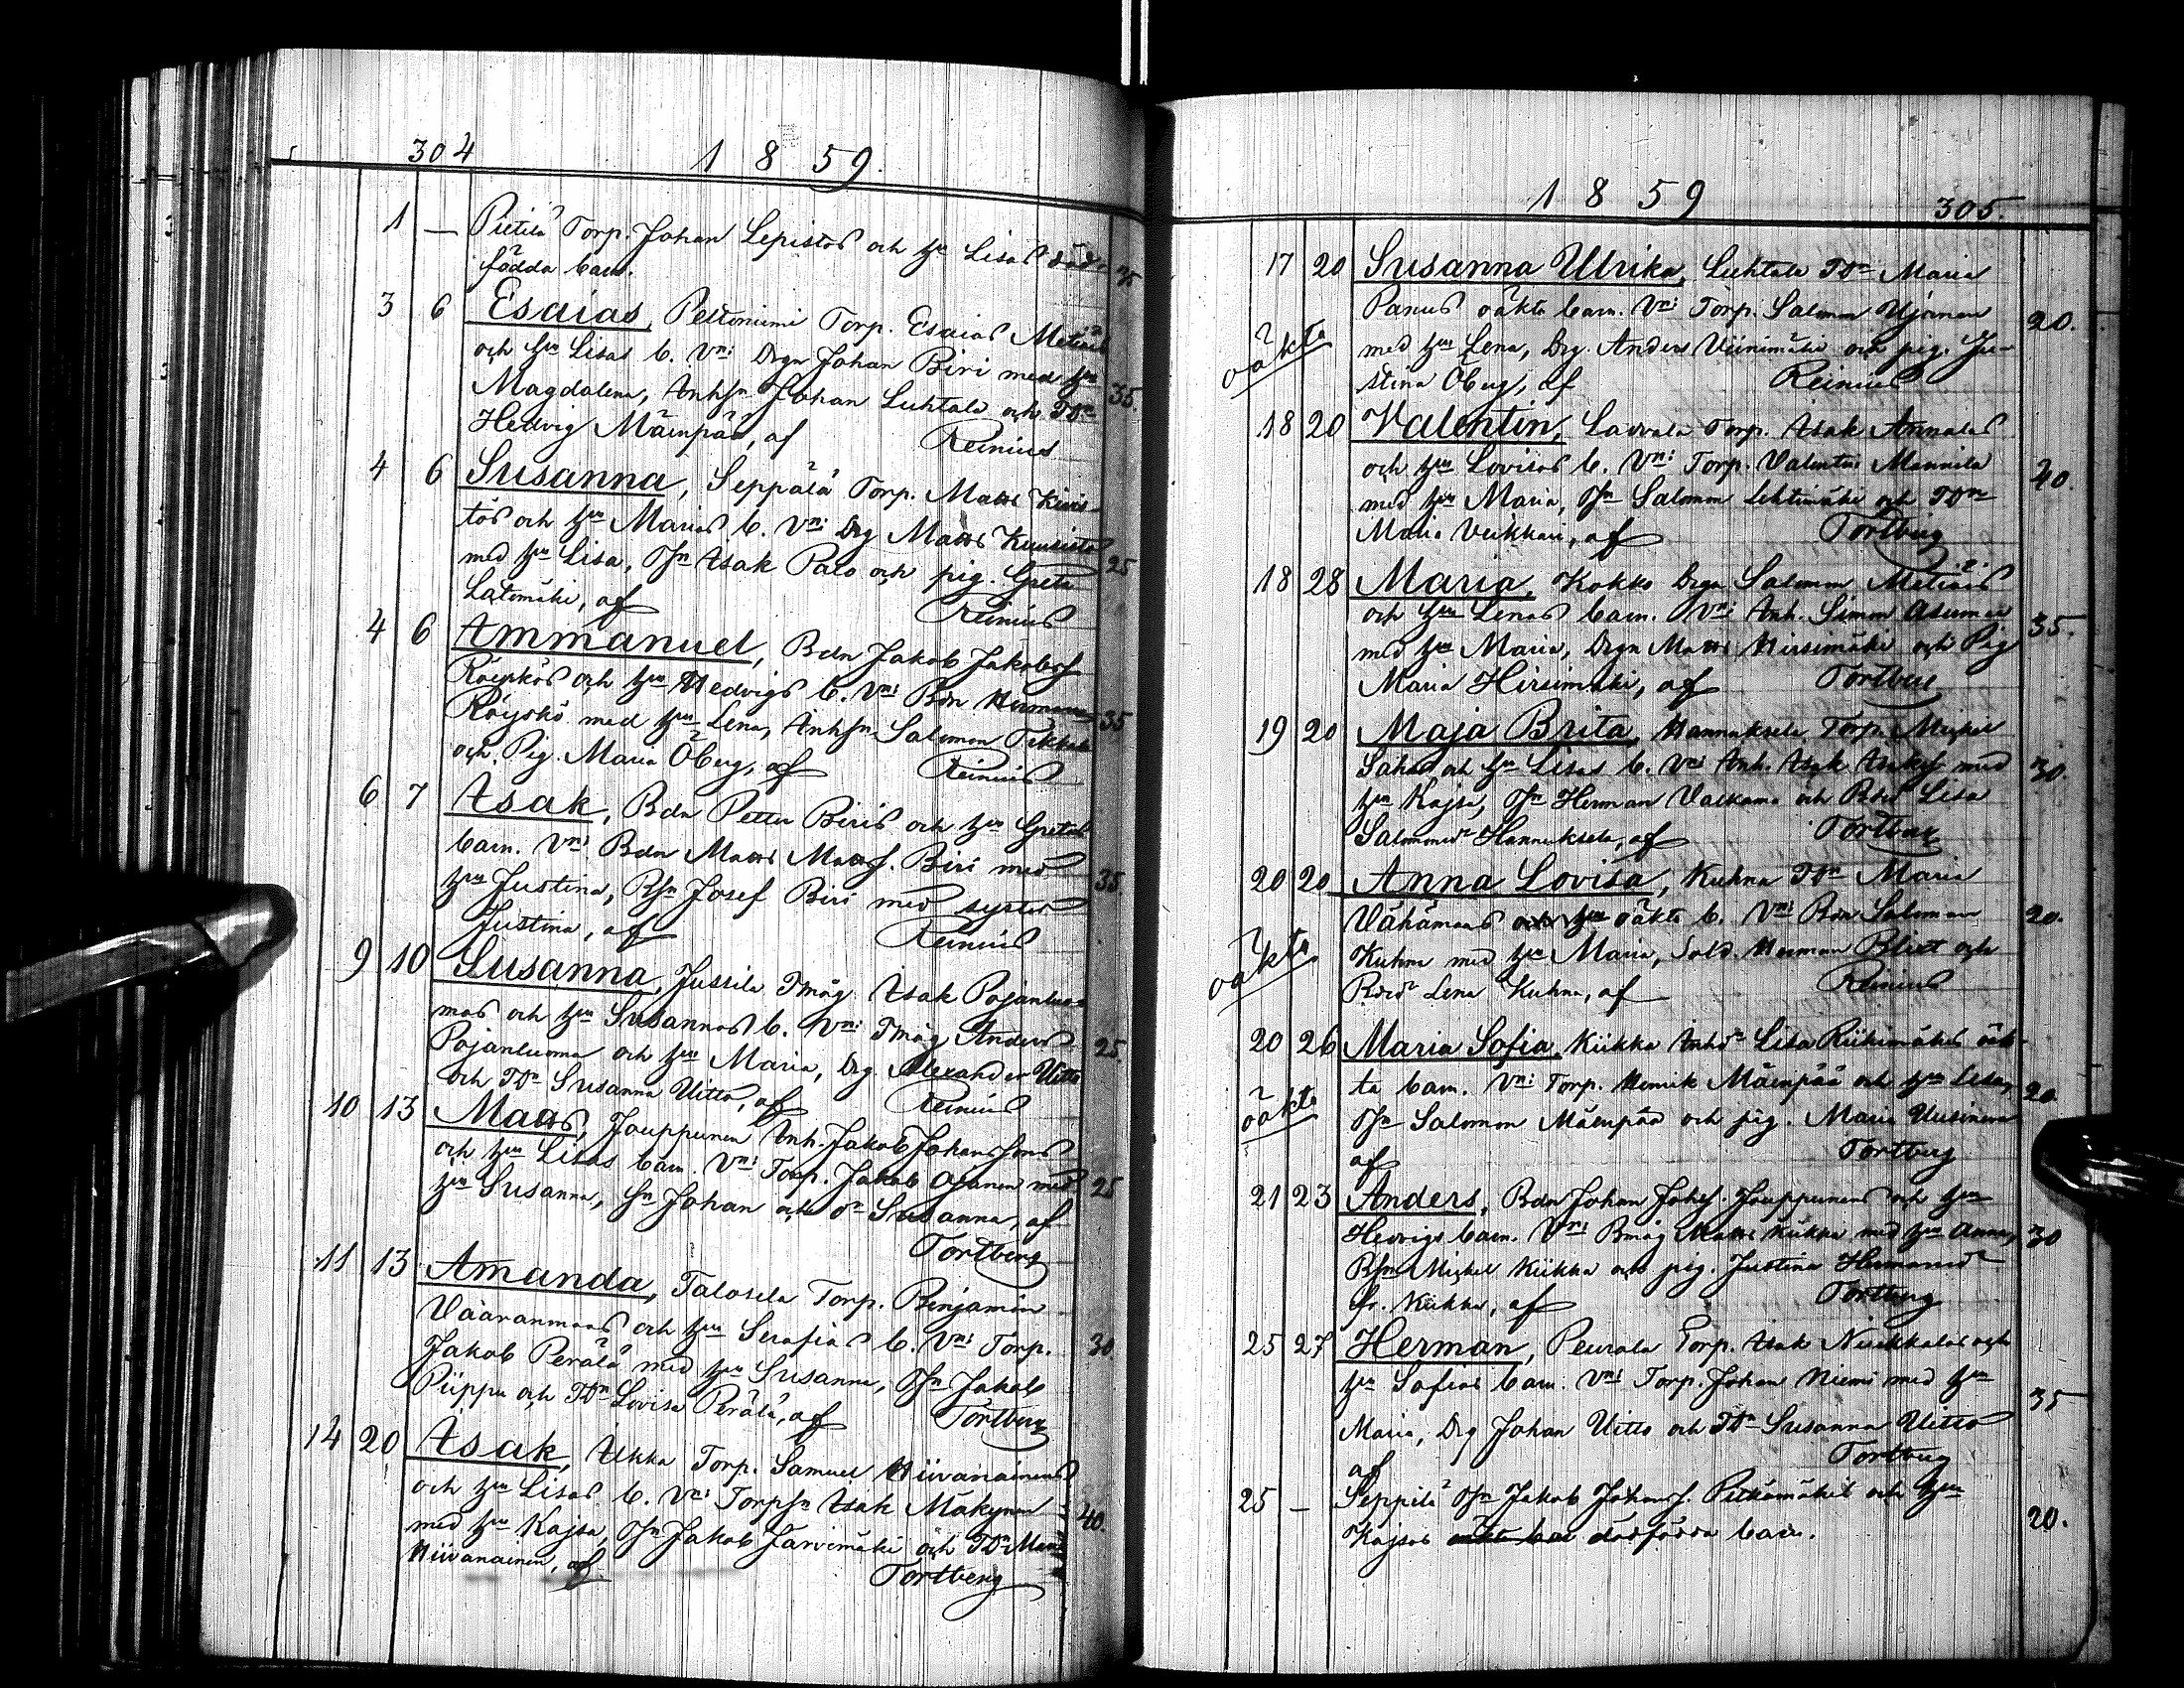 304 1859.
1 — Pietilä Torp. Johan Lepistös och hu Lisas död-
födda barn. 35
3 6 Esaias, Peltoniemi Torp. Esaias Metiäis
och hu Lisas b. Vn: Drgn Johan Biri med hu
Magdalena, Inhsn Johan Luhtala och TDr 35.
Hedvig Mäenpää, af Reinius
4 6 Susanna, Seppälä Torp. Matts Kivis-
tös och hu Marias b. Vn: Drg Matts Kuusisto
med hu Lisa, Tsn Isak Palo och pig. Greta 25
Latomäki, af Reinius
4 6 Ammanuel, Bdn Jakob Jakobsf
Röyskös och hu Hedvigs b. Vn: Bdn Herman
Röyskö med hu Lena, Inhsn Salomon Tikkala 35
och Pig. Maria Öberg, af Reinius
6 7 Isak, Bdn Petter Biris och hu Gretas
barn. Vn: Bdn Matts Mattsf. Biri med
hu Justina, Bsn Josef Biri med syster 35.
Justina, af Reinius
9 10 Susanna, Jussila Tmåg Isak Pojanluo-
mas och hu Susannas b. Vn: Tmåg Anders
Pojanluoma och hu Maria, Drg. Alexander Uitto 25.
och TDr Susanna Uitto, af Reinius
10 13 Matts, Jouppinen Inh. Jakob Johanssons
och hu Lisas barn. Vn: Torp. Jakob Ojanen med 25
hu Susanna, Sn Johan och dr Susanna, af
Tortberg
11 13 Amanda, Talosela Torp. Benjamin
Vääränmaas och hu Serafias b. Vn: Torp. 30
Jakob Perälä med hu Susanna, Tsn Jakob
Piippu och TDr Lovisa Perälä, af Tortberg
14 20 Isak, Ukka Torp. Samuel Hiivanainens
och hu Lisas b. Vn: Torpsn Isak Mäkynen
med hu Kajsa, Tsn Jakob Järvimäki och TDr Maria 40.
Hiivanainen, af Tortberg
1859 305.
17 20 Susanna Ulrika, Luhtala TDr Maria
Panus oäkta barn. Vn: Torp. Salomon 20.
oäkta med hu Lena, Drg. Anders Viinimäki och pig. Ju-
stina Öberg, af Reinius
18 20 Valentin, Lavvala Torp. Isak Annalas
och hu Lovisas b. Vn: Torp. Valentin Mannila 40.
med hu Maria, Tsn Salomon Lehtimäki och TDr
Maria Veikkari, af Tortberg
18 28 Maria, Kokko Drgn Salomon Metiäis
och hu Lenas barn. Vn: Inh. Simon Asuma 35.
med hu Maria, Drgn Matts Hirsimäki och Pig
Maria Hirsimäki, af Tortberg
19 20 Maja Brita, Hannuksela Torp. Michel
Sahas och hu Lisas b. Vn: Inh. Isak Isaksf med 30.
hu Kajsa, Tsn Herman Valkama och Bdr Lisa
Salomonsdr Hannuksela, af Tortberg
20 20 Anna Lovisa, Kuhna TDr Maria
Vähämaas och hu oäkta b. Vn: Bdn Salomon 20.
oäkta Kuhna med hu Maria, Sold. Herman Blixt och
Bdr Lena Kuhna, af Reinius
20 26 Maria Sofia, Kiikka Inhdr Lisa Riihimäkis oäk-
ta barn. Vn: Torp. Henrik Mäenpää och hu Lisa, 20.
oäkta Tsn Salomon Mäenpää och pig. Maria Uusineva
af Tortberg
21 23 Anders, Bdn Johan Johsf. Jouppinens och hu
Hedvigs barn. Vn: Bmåg Matts Kiikka med hu Anna, 30
Bsn Michel Kiikka och pig. Justina Hermansdr
Kiikka, af Tortberg
25 27 Herman, Peurala Torp. Isak Niukkalas och
hu Sofias barn. Vn: Torp. Johan Niemi med hu 35
Maria, Drg Johan Uitto och TDr Susanna Uitto
af Tortberg
25 — Seppilä Tsn Jakob Johansf. Pitkämäkis och hu
Kajsas oäkta bar dödfödda barn. 20.